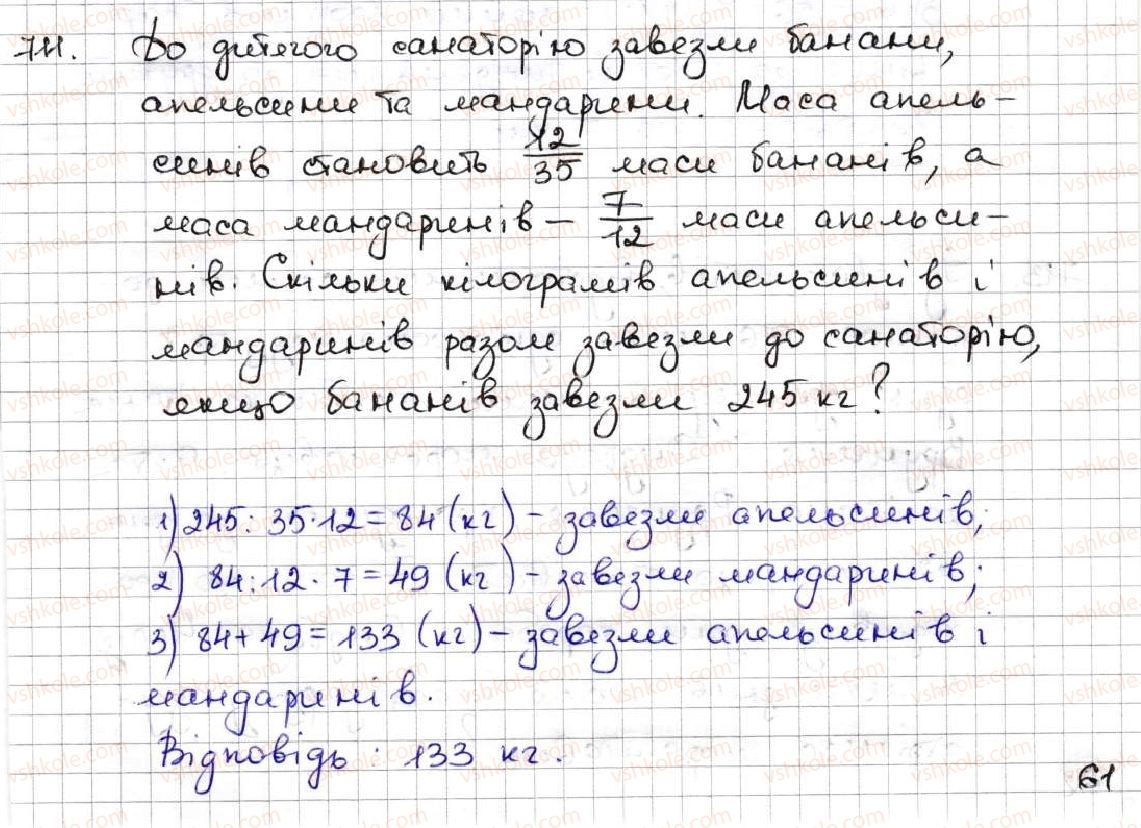 711. До дитячого санаторію завезли банани,
апельсини та мандарини. Маса апель-
синів становить 12/35 маси бананів, а
маса мандаринів – 7/12 маси апельси-
нів. Скільки кілограмів апельсинів і
мандаринів разом завезли до санаторію,
якщо бананів завезли 245 кг?
1) 245 : 35 · 12 = 84 (кг) – завезли апельсинів;
2) 84 : 12 · 7 = 49 (кг) – завезли мандаринів;
3) 84 + 49 = 133 (кг) – завезли апельсинів і
мандаринів.
Відповідь : 133 кг.
61